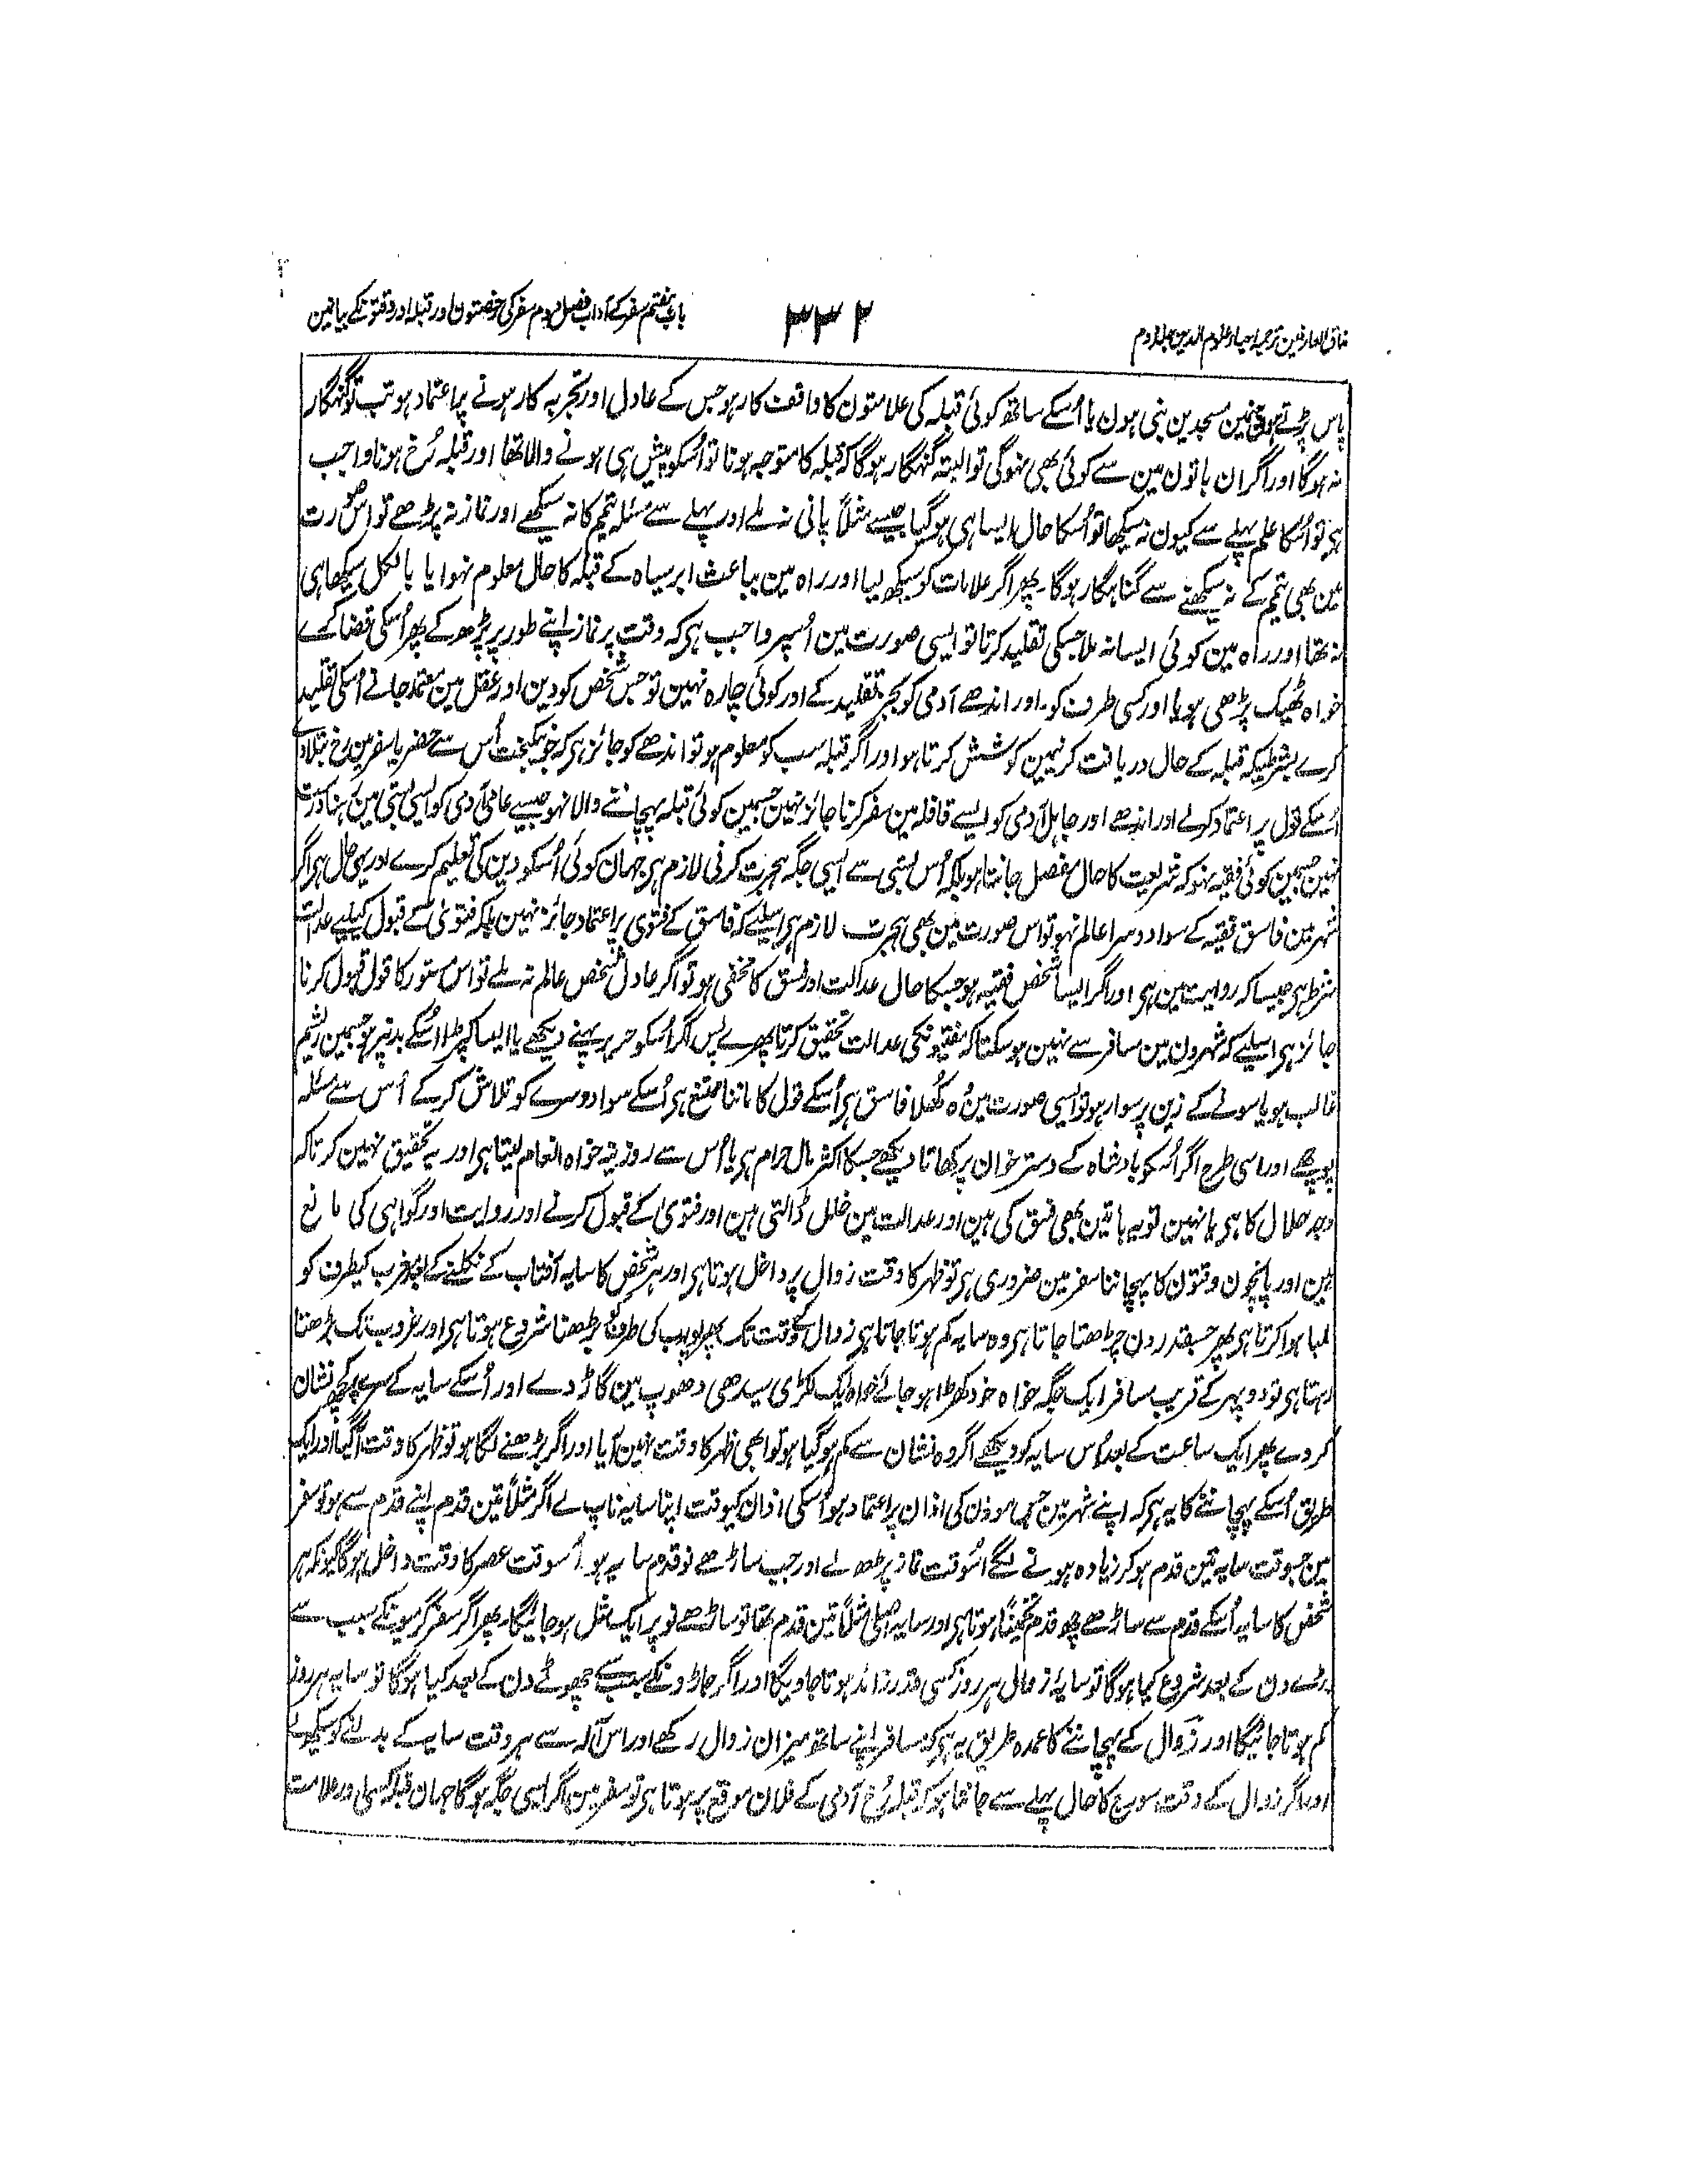 مذاق العارفین ترجمہ احیاء علوم الدین جلد دوم
۳۳۲
باب ہفتم سفر کے آداب فصل دوم سفر کی رخصتون اور قبلہ اور وقتونکے بیانمین
پاس پڑتے ہون جنمین مسجدین بنی ہون یا اُسکے ساتھ کوئی قبلہ کی علامتون کا واقف کار ہو جس کے عادل اور تجربہ کار ہونے پر اعتماد ہو تب تو گنہگار
نہ ہوگا اور اگر ان باتون مین سے کوئی بھی نہوگی تو البتہ گنہگار ہوگا کہ قبلہ کا متوجہ ہونا تو اُسکو پیش ہی ہونے والا تھا اور قبلہ رُخ ہونا واجب
ہی تو اُسکا علم پہلے سے کیون نہ سیکھا تو اُسکا حال ایسا ہی ہوگیا جیسے مثلاً پانی نہ ملے اور پہلے سے مسئلہ تیمم کا نہ سیکھے اور نماز نہ پڑھے تو اس صورت
مین بھی تیمم کے نہ سیکھنے سے گناہگار ہوگا۔ پھر اگر علامات کو سیکھ لیا اور راہ مین بباعث ابر سیاہ کے قبلہ کا حال معلوم نہوا یا بالکل سیکھا ہی
نہ تھا اور راہ مین کوئی ایسا نہ ملا جسکی تقلید کرتا تو ایسی صورت مین اُسپر واجب ہی کہ وقت پر نماز اپنے طور پر پڑھ کے پھر اُسکی قضا کرے
خواہ ٹھیک پڑھی ہو یا اور کسی طرف کو۔ اور اندھے آدمی کو بجز تقلید کے اور کوئی چارہ نہین تو جس شخص کو دین اور عقل مین معتمد جانے اُسکی تقلید
کرے بشرطیکہ قبلہ کے حال دریافت کرنیمین کوشش کرتا ہو اور اگر قبلہ سب کو معلوم ہو تو اندھے کو جائز ہی کہ جو نیکبخت اُس سے حضر یا سفر مین رخ بتلاوے
اُسکے قول پر اعتماد کرلے اور اندھے اور جاہل آدمی کو ایسے قافلہ مین سفر کرنا جائز نہین جسمین کوئی قبلہ پہچاننے والا نہو جیسے عامی آدمی کو ایسی بستی مین رہنا درست
نہین جسمین کوئی فقیہ نہو کہ شریعت کا حال مفصل جانتا ہو بلکہ اُس بستی سے ایسی جگہ ہجرت کرنی لازم ہی جہان کوئی اُسکو دین کی تعلیم کرے اور یہی حال ہی اگر
شہر مین فاسق فقیہ کے سوا دوسرا عالم نہو تو اس صورت مین بھی ہجرت لازم ہی اسلیے کہ فاسق کے فتوی پر اعتماد جائز نہین بلکہ فتویٰ کے قبول کیلیے عدالت
شرط ہی جیسا کہ روایت مین ہی اور اگر ایسا شخص فقیہ ہو جسکا حال عدالت اور فسق کا مخفی ہو تو اگر عادل شخص عالم نہ ملے تو اس مستور کا قول قبول کرنا
جائز ہی اسلیے کہ شہرون مین مسافر سے نہین ہوسکتا کہ مفتیونکی عدالت تحقیق کرتا پھرے پس اگر اُسکو حریر پہنے دیکھے یا ایسا کپڑا اُسکے بدنپر ہو جسمین ریشم
غالب ہو یا سونے کے زین پر سوار ہو تو ایسی صورت مین وُہ کھُلا فاسق ہی اُسکے قول کا ماننا ممتنع ہی اُسکے سوا دوسرے کو تلاش کرکے اُس سے مسئلہ
پوچھے اور اسی طرح اگر اُسکو بادشاہ کے دسترخوان پر کھاتا دیکھے جسکا اکثر مال حرام ہی یا اُس سے روزینہ خواہ انعام لیتا ہی اور یہ تحقیق نہین کرتا کہ
وجہ حلال کا ہی یا نہین تو یہ باتین بھی فسق کی ہین اور عدالت مین خلل ڈالتی ہین اور فتویٰ کے قبول کرنے اور روایت اور گواہی کی مانع
ہین اور پانچون وقتون کا پہچاننا سفر مین ضروری ہی تو ظہر کا وقت زوال پر داخل ہوتا ہی اور ہر شخص کا سایہ آفتاب کے نکلنے کے بعد مغرب کیطرف کو
لمبا ہوا کرتا ہی پھر جسقدر دن چڑھتا جاتا ہی وہ سایہ کم ہوتا جاتا ہی زوال کے وقت تک پھر پورب کی طرف بڑھنا شروع ہوتا ہی اور غروب تک بڑھتا
رہتا ہی تو دوپہر کے قریب مسافر ایک جگہ خواہ خود کھڑا ہو جائے خواہ ایک لکڑی سیدھی دھوپ مین گاڑ دے اور اُسکے سایہ کے سرے پر کچھ نشان
کردے پھر ایک ساعت کے بعد اُس سایہ کو دیکھے اگر وہ نشان سے کم ہوگیا ہو تو ابھی ظہر کا وقت نہین آیا اور اگر بڑھنے لگا ہو تو ظہر کا وقت آگیا اور ایک
طریق اُسکے پہچاننے کا یہ ہی کہ اپنے شہر مین جس موذن کی اذان پر اعتماد ہو اُسکی اذان کیوقت اپنا سایہ ناپ لے اگر مثلاً تین قدم اپنے قدم سے ہو تو سفر
مین جسوقت سایہ تین قدم ہوکر زیادہ ہونے لگے اُسوقت نماز پڑھ لے اور جب ساڑھے نو قدم سایہ ہو اُسوقت عصر کا وقت داخل ہوگا کیونکہ ہر
شخص کا سایہ اُسکے قدم سے ساڑھے چھ قدم تخمیناً ہوتا ہی اور سایہ اصلی مثلاً تین قدم تھا تو ساڑھے نو پر ایک مثل ہوجائیگا۔ پھر اگر سفر گرمیونکے سبب سے
بڑے دن کے بعد شروع کیا ہوگا تو سایۂ زوال ہر روز کسی قدر زائد ہوتا جاویگا اور اگر جاڑونکے سبب سے چھوٹے دن کے بعد کیا ہوگا تو سایہ ہر روز
کم ہوتا جائیگا اور زوال کے پہچاننے کا عمدہ طریق یہ ہی کہ مسافر اپنے ساتھ میزان زوال رکھے اور اس آلہ سے ہر وقت سایہ کے بدلنے کو سیکھ لے
اور اگر زوال کے وقت سورج کا حال پہلے سے جانتا ہو کہ قبلہ رُخ آدمی کے فلان موقع پر ہوتا ہی تو سفر مین اگر ایسی جگہ ہوگا جہان قبلہ کسی اور علامت